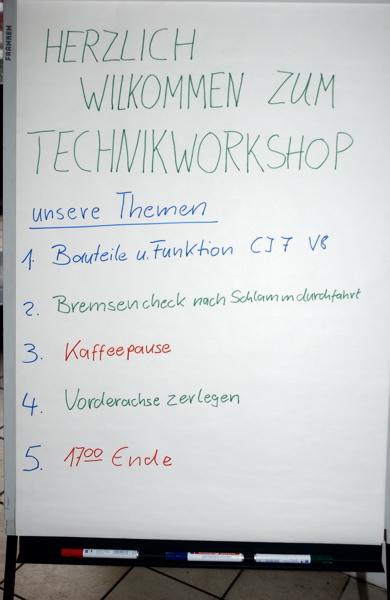 FRANKEN
HERZLICH
WILKOMMEN ZUM
TECHNIKWORKSHOP
unsere Themen
1. Bauteile u. Funktion CJ7 V8
2. Bremsencheck nach Schlammdurchfahrt
3. Kaffeepause
4. Vorderachse zerlegen
5. 17⁰⁰ Ende